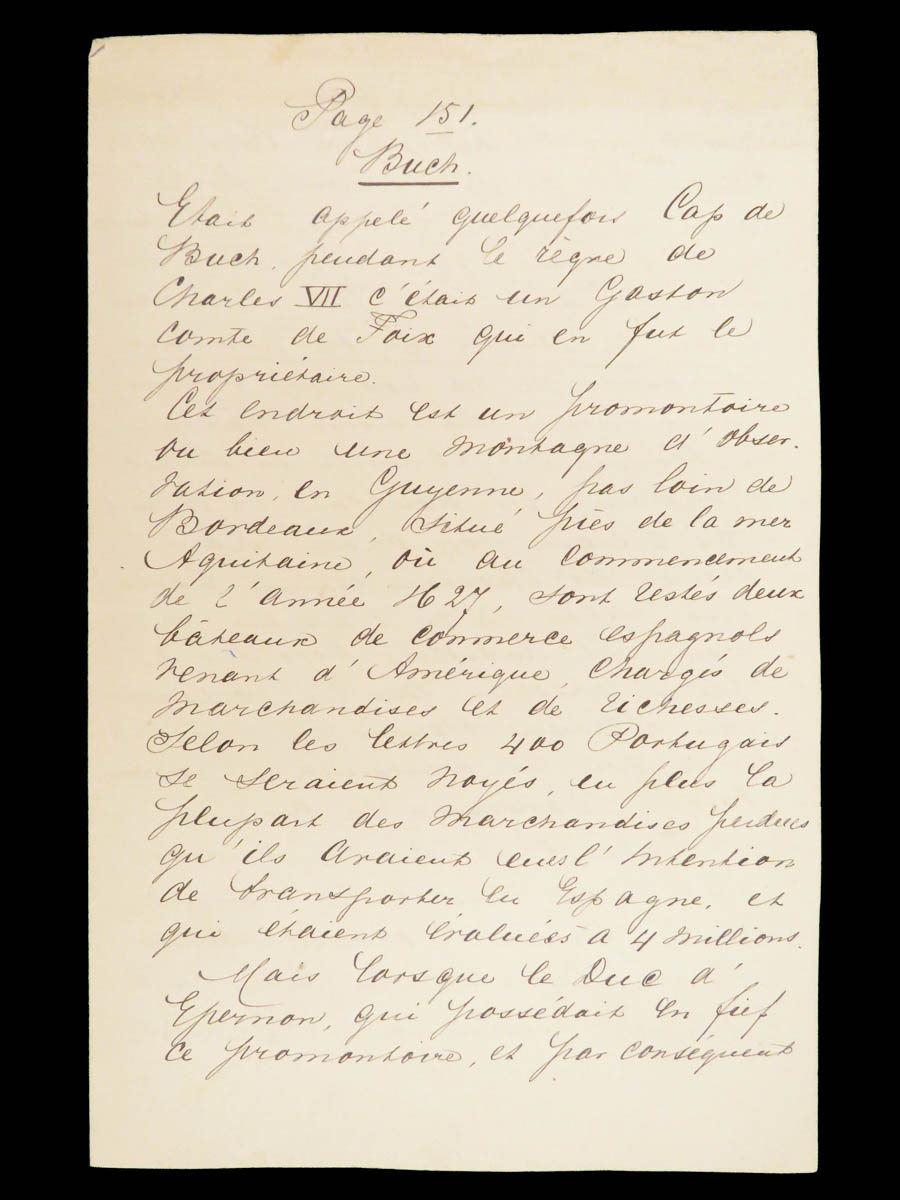 Page 151.
Buch.
Etait appelé quelquefois Cap de
Buch, pendant le règne de
Charles VII c'était un Gaston
comte de Foix qui en fut le
propriétaire.
Cet endroit est un promontoire
ou bien une montagne d'obser-
vation, en Guyenne, pas loin de
Bordeaux, situé près de la mer
Aquitaine, où au commencement
de l'année 1627, sont restés deux
bâteaux de commerce espagnols
venant d'Amérique, chargés de
marchandises et de richesses.
Selon les lettres 400 Portugais
se seraient noyés, en plus la
plupart des marchandises perdues
qu'ils avaient eues l'intention
de transporter en Espagne, et
qui étaient évaluées à 4 millions.
Mais lorsque le Duc d'
Epernon, qui possédait en fief
ce promontoire, et par conséquent